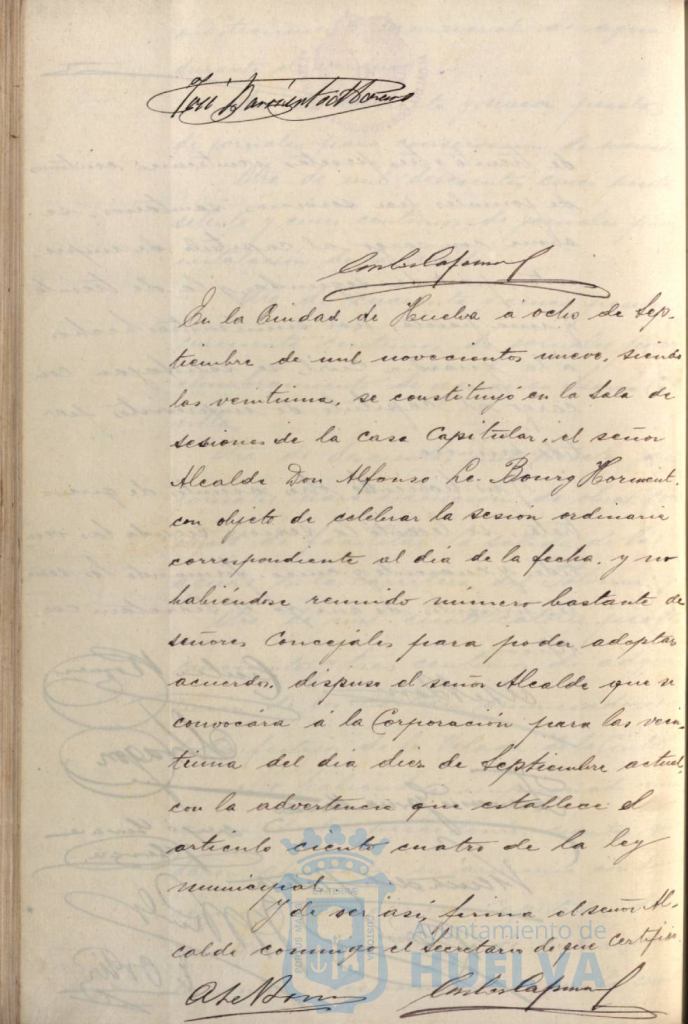 José Barrientos Moreno
En la Ciudad de Huelva á ocho de Sep-
tiembre de mil novecientos nueve, siendo
las veintiuna, se constituyó en la Sala de
sesiones de la casa Capitular, el señor
Alcalde Don Alfonso Le-Bourg Horment.
con objeto de celebrar la sesión ordinaria
correspondiente al día de la fecha, y no
habiéndose reunido número bastante de
señores Concejales para poder adoptar
acuerdos, dispuso el señor Alcalde que se
convocára á la Corporación para las vein-
tiuna del día diez de Septiembre actual,
con la advertencia que establece el
artículo ciento cuatro de la ley
municipal.
Y de ser así, firma el señor Al-
calde conmigo el Secretario de que certifico.
A Le Bourg
Ayuntamiento de
HUELVA